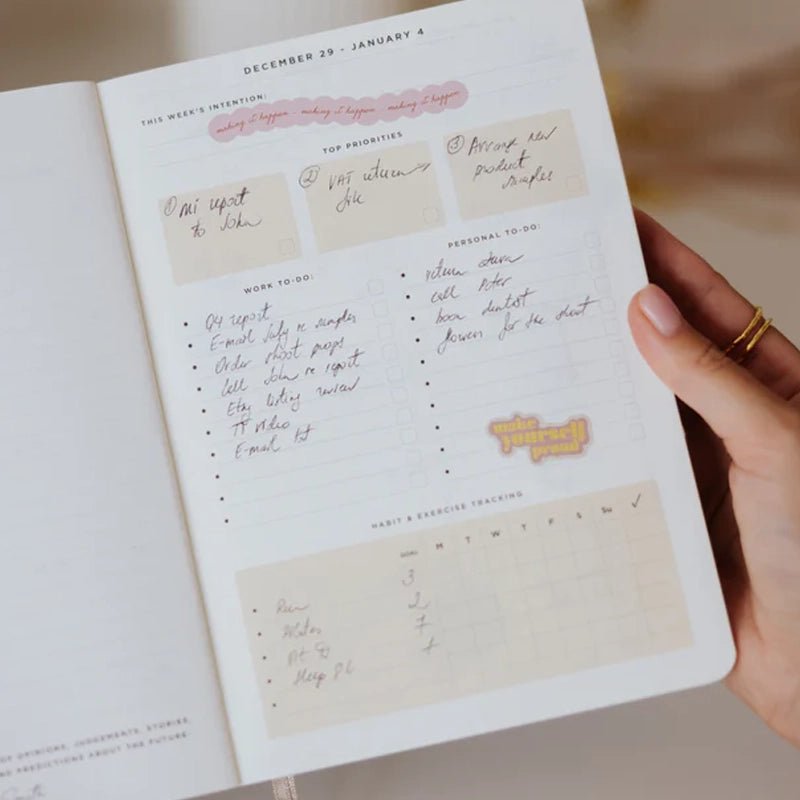 DECEMBER 29 - JANUARY 4
THIS WEEK'S INTENTION:
making it happen - making it happen - making it happen
TOP PRIORITIES
① MI report
to John
② VAT return
③ Arrange new
product
samples
WORK TO-DO:
Q4 report
E-mail July re samples
Order shoot props
Call John re report
Etsy listing review
TT video
E-mail
PERSONAL TO-DO:
return
call Peter
book dentist
flowers for the shoot
make
yourself
proud
HABIT & EXERCISE TRACKING
GOAL M T W T F S Su ✓
Run 3
Pilates 2
7
Sleep 8h
OF OPINIONS, JUDGEMENTS, STORIES,
AND PREDICTIONS ABOUT THE FUTURE.